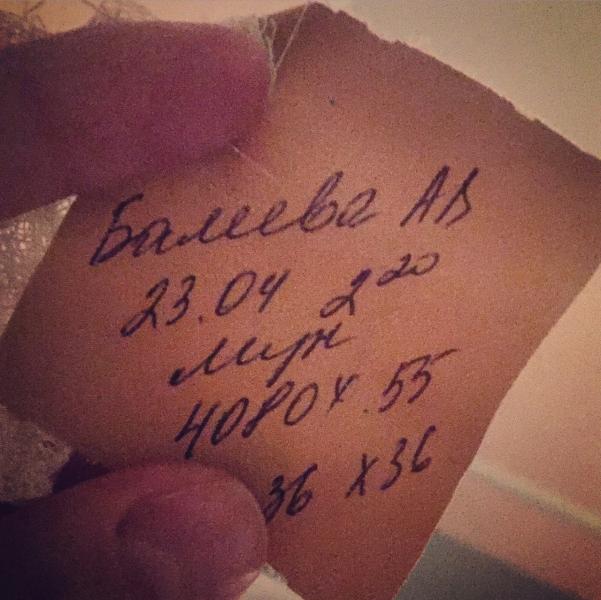 Балеева АВ
23.04 2²⁰
муж
4080 х 55
36 х 36